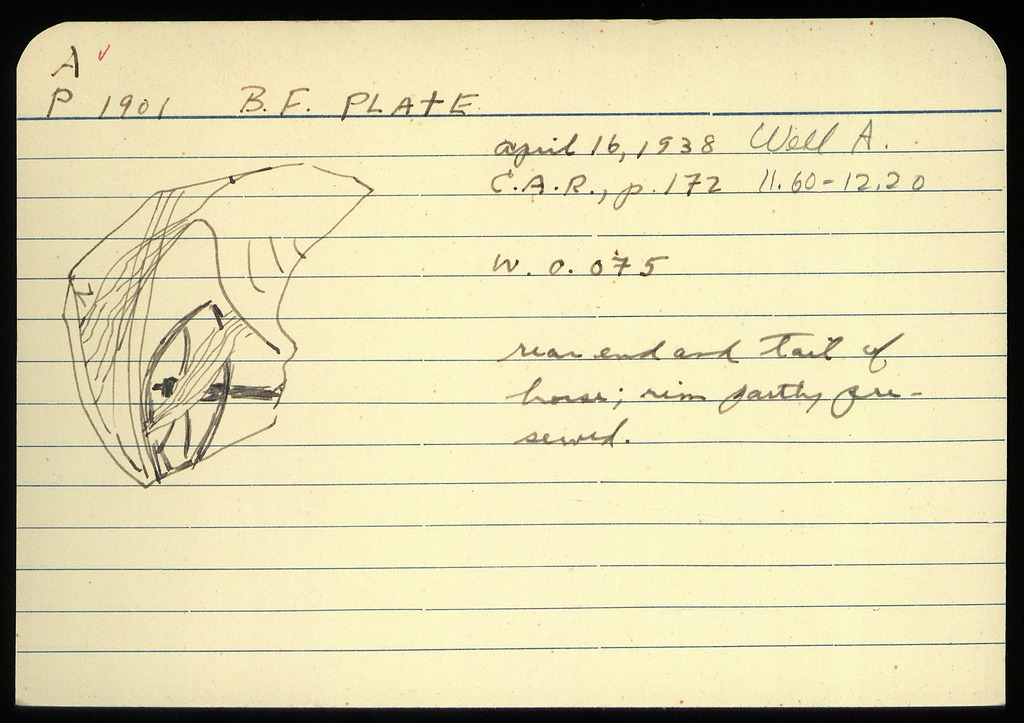 A
P 1901 B.F. PLATE
april 16, 1938 Well A.
C.A.R., p. 172 11.60-12.20
W. 0.075
rear end and tail of
horse; rim partly pre-
served.